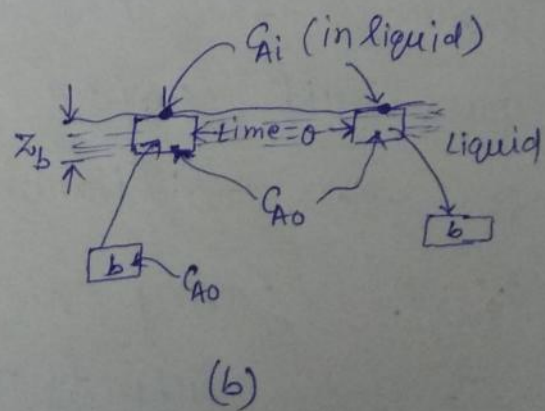 C_Ai (in liquid)
Z_b
time=θ
Liquid
C_A0
b
b
C_A0
(b)